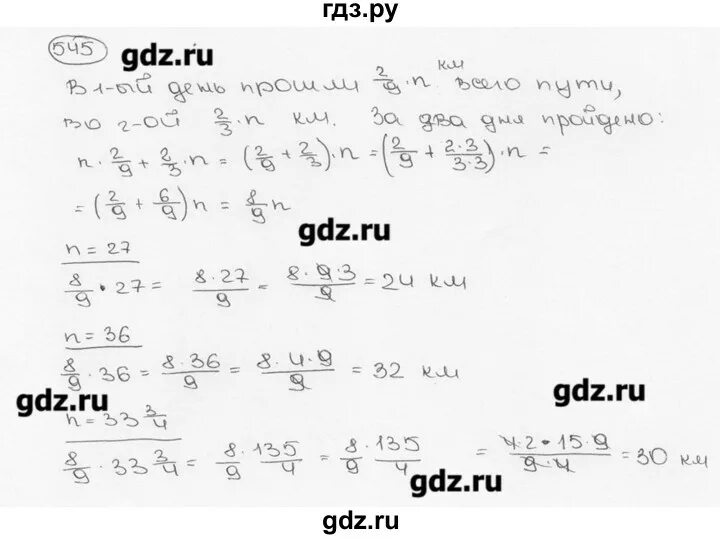 гдз.ру
545 gdz.ru
В 1-ый день прошли 2/9 · n км всего пути,
во 2-ой 2/3 · n км. За два дня пройдено:
n · 2/9 + 2/3 · n = (2/9 + 2/3) · n = (2/9 + 2·3/3·3) · n =
= (2/9 + 6/9) n = 8/9 n
gdz.ru
n = 27
8/9 · 27 = 8·27/9 = 8·9·3/9 = 24 км
n = 36
8/9 · 36 = 8·36/9 = 8·4·9/9 = 32 км
gdz.ru gdz.ru
n = 33 3/4
8/9 · 33 3/4 = 8/9 · 135/4 = 8/9 · 135/4 = 4·2·15·9/9·4 = 30 км
gdz.ru
gdz.ru